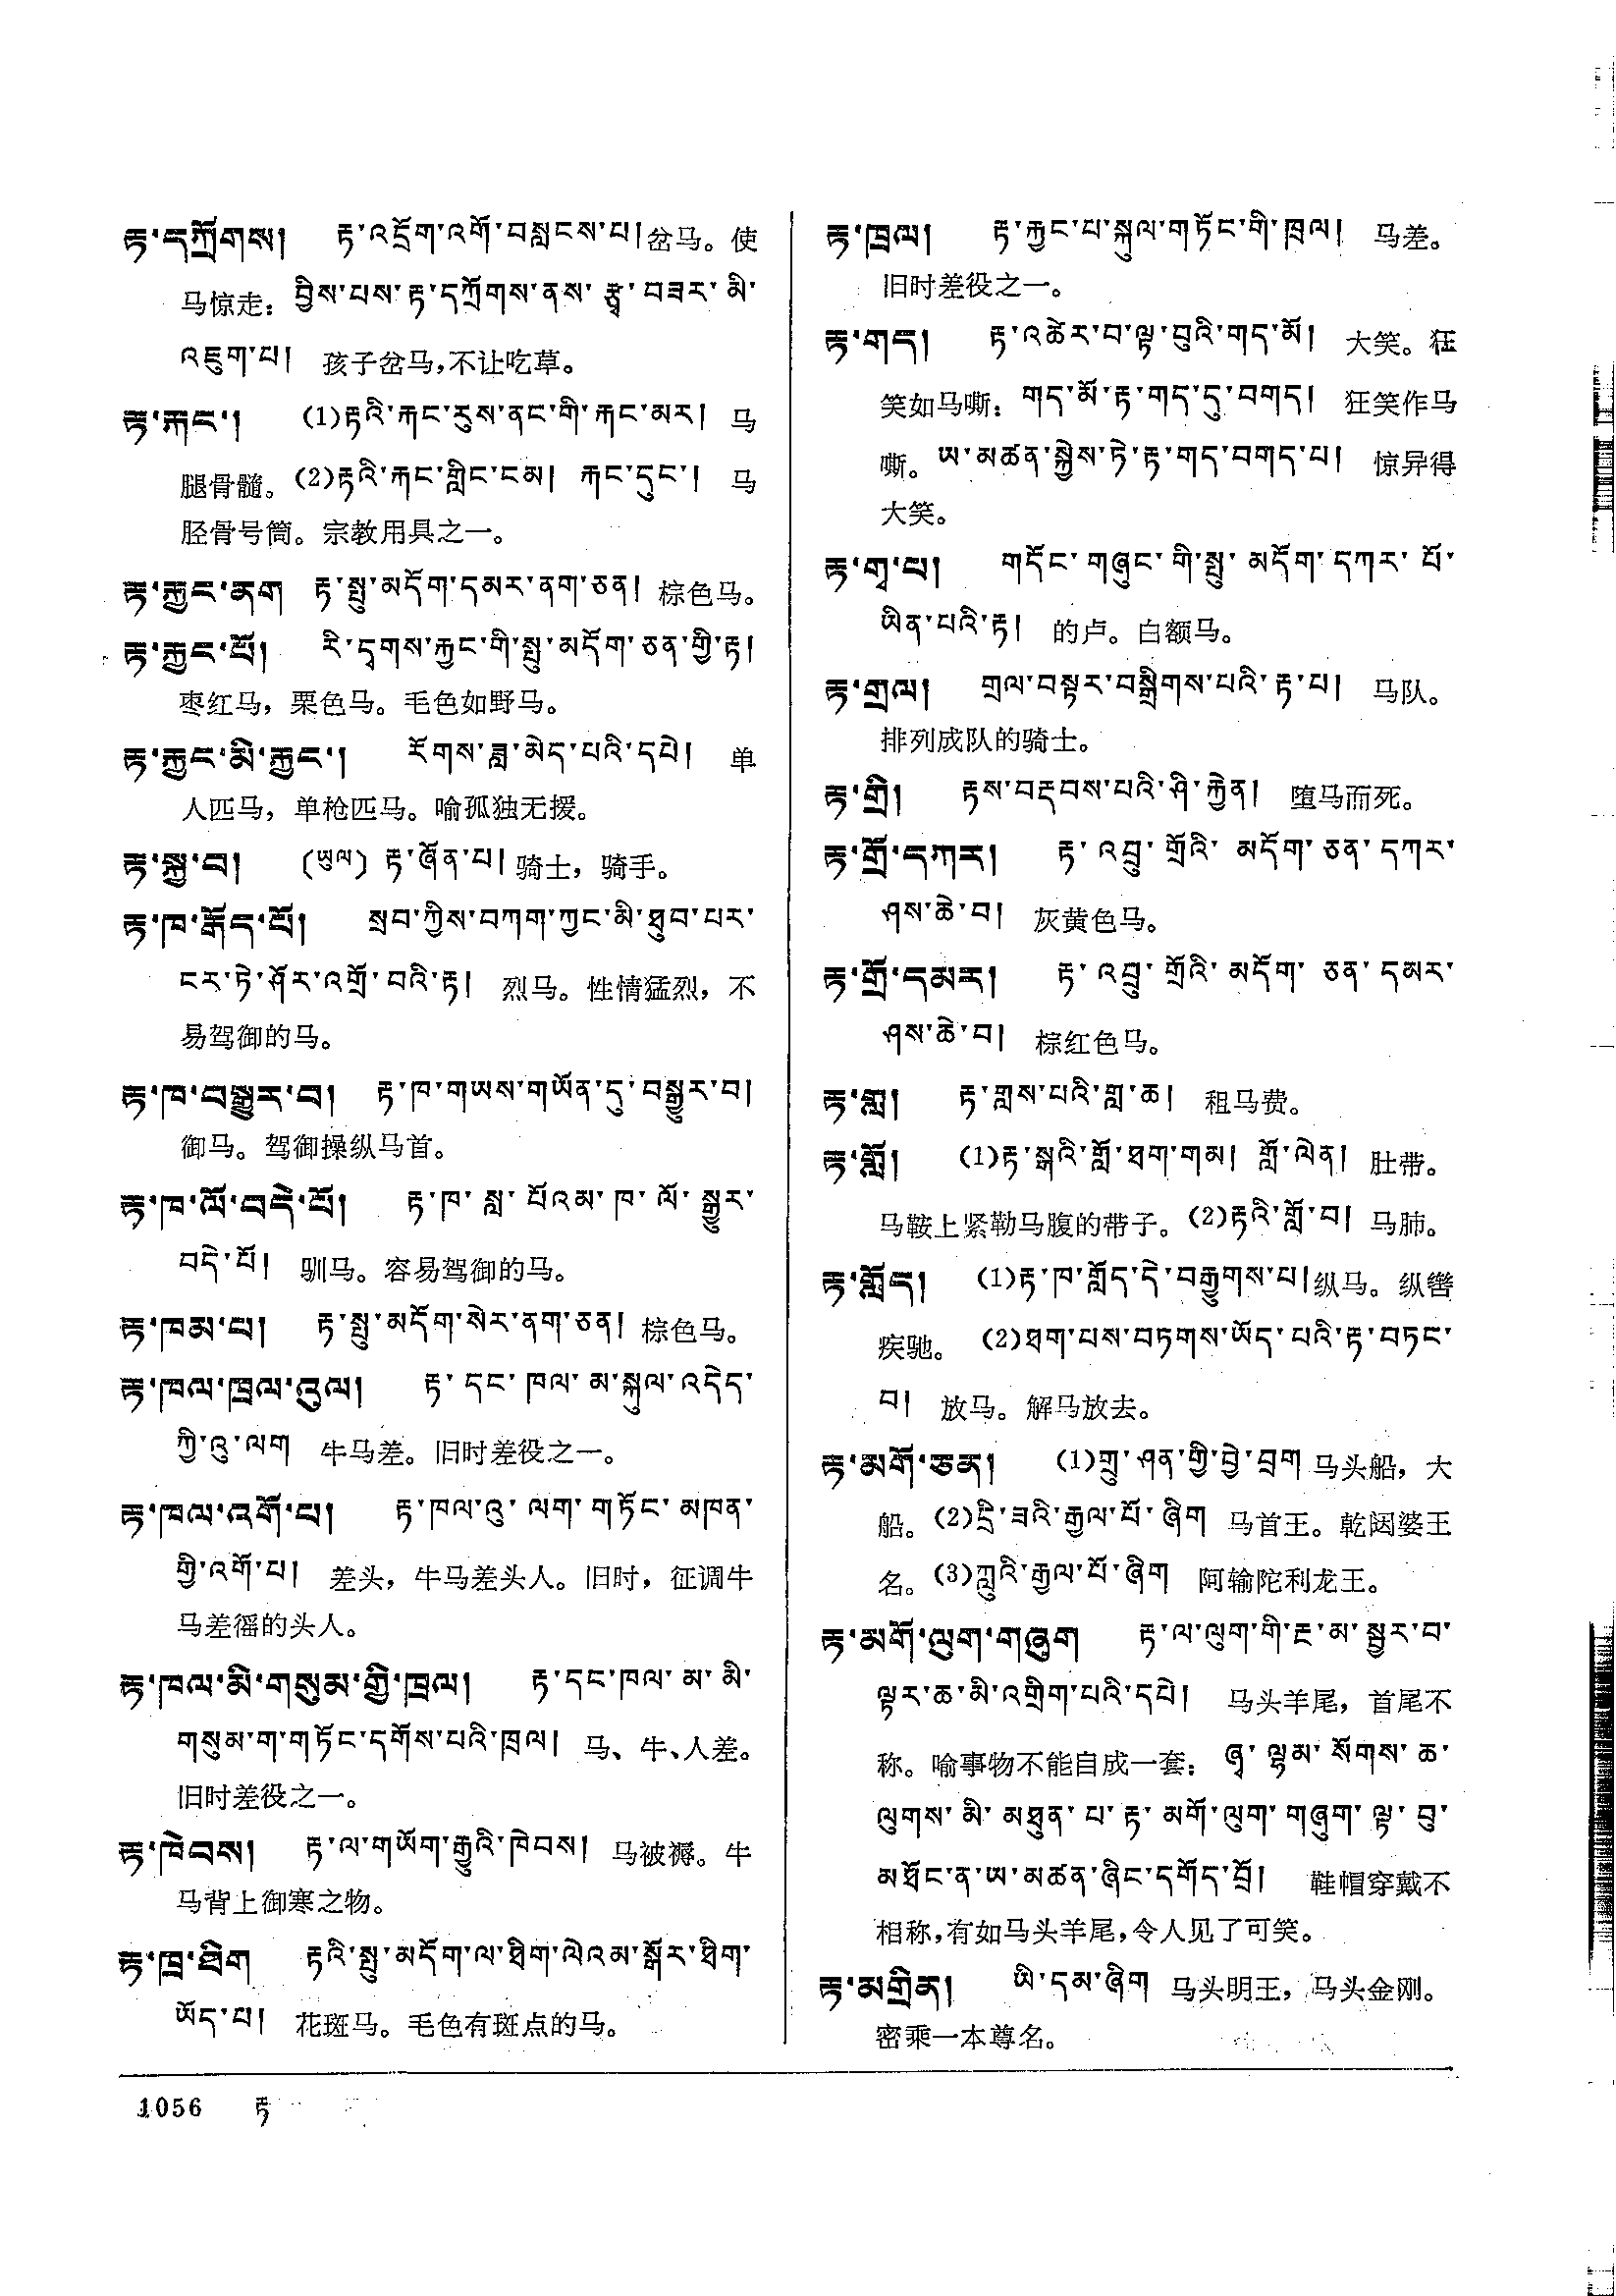 རྟ་དཀྲོགས། རྟ་འདྲོག་འགོ་བསླངས་པ།岔马。使
马惊走：བྱིས་པས་རྟ་དཀྲོགས་ནས་རྩྭ་བཟར་མི་
འཇུག་པ། 孩子岔马,不让吃草。
རྟ་རྐང་། (1)རྟའི་རྐང་རུས་ནང་གི་རྐང་མར། 马
腿骨髓。(2)རྟའི་རྐང་གླིང་ངམ། རྐང་དུང་། 马
胫骨号筒。宗教用具之一。
རྟ་རྐྱང་ནག རྟ་སྤུ་མདོག་དམར་ནག་ཅན། 棕色马。
རྟ་རྐྱང་པོ། རི་དྭགས་རྐྱང་གི་སྤུ་མདོག་ཅན་གྱི་རྟ།
枣红马，栗色马。毛色如野马。
རྟ་རྐྱང་མི་རྐྱང་། རོགས་ཟླ་མེད་པའི་དཔེ། 单
人匹马，单枪匹马。喻孤独无援。
རྟ་སྐྱ་བ། (ཡུལ) རྟ་ཞོན་པ།骑士，骑手。
རྟ་ཁ་རྒོད་པོ། སྲབ་ཀྱིས་བཀག་ཀྱང་མི་ཐུབ་པར་
ངར་ཏེ་ཤོར་འགྲོ་བའི་རྟ། 烈马。性情猛烈，不
易驾御的马。
རྟ་ཁ་བསྒྱུར་བ། རྟ་ཁ་གཡས་གཡོན་དུ་བསྒྱུར་བ།
御马。驾御操纵马首。
རྟ་ཁ་ལོ་བདེ་པོ། རྟ་ཁ་སླ་པོའམ་ཁ་ལོ་སྒྱུར་
བདེ་པོ། 驯马。容易驾御的马。
རྟ་ཁམ་པ། རྟ་སྤུ་མདོག་སེར་ནག་ཅན། 棕色马。
རྟ་ཁལ་ཁྲལ་འུལ། རྟ་དང་ཁལ་མ་སྐུལ་འདེད་
ཀྱི་འུ་ལག 牛马差。旧时差役之一。
རྟ་ཁལ་འགོ་པ། རྟ་ཁལ་འུ་ལག་གཏོང་མཁན་
གྱི་འགོ་པ། 差头，牛马差头人。旧时，征调牛
马差徭的头人。
རྟ་ཁལ་མི་གསུམ་གྱི་ཁྲལ། རྟ་དང་ཁལ་མ་མི་
གསུམ་ག་གཏོང་དགོས་པའི་ཁྲལ། 马、牛、人差。
旧时差役之一。
རྟ་ཁེབས། རྟ་ལ་གཡོག་རྒྱུའི་ཁེབས། 马被褥。牛
马背上御寒之物。
རྟ་ཁྲ་ཐིག རྟའི་སྤུ་མདོག་ལ་ཐིག་ལེའམ་སྒོར་ཐིག་
ཡོད་པ། 花斑马。毛色有斑点的马。
རྟ་ཁྲལ། རྟ་རྐྱང་པ་སྐུལ་གཏོང་གི་ཁྲལ། 马差。
旧时差役之一。
རྟ་གད། རྟ་འཚེར་བ་ལྟ་བུའི་གད་མོ། 大笑。狂
笑如马嘶：གད་མོ་རྟ་གད་དུ་བགད། 狂笑作马
嘶。ཡ་མཚན་སྐྱེས་ཏེ་རྟ་གད་བགད་པ། 惊异得
大笑。
རྟ་གྭ་པ། གདོང་གཞུང་གི་སྤུ་མདོག་དཀར་པོ་
ཡིན་པའི་རྟ། 的卢。白额马。
རྟ་གྲལ། གྲལ་བསྟར་བསྒྲིགས་པའི་རྟ་པ། 马队。
排列成队的骑士。
རྟ་གྲི། རྟས་བརྡབས་པའི་ཤི་རྐྱེན། 堕马而死。
རྟ་གྲོ་དཀར། རྟ་འབྲུ་གྲོའི་མདོག་ཅན་དཀར་
ཤས་ཆེ་བ། 灰黄色马。
རྟ་གྲོ་དམར། རྟ་འབྲུ་གྲོའི་མདོག་ཅན་དམར་
ཤས་ཆེ་བ། 棕红色马。
རྟ་གླ། རྟ་གླས་པའི་གླ་ཆ། 租马费。
རྟ་གློ། (1)རྟ་སྒའི་གློ་ཐག་གམ། གློ་ལེན། 肚带。
马鞍上紧勒马腹的带子。(2)རྟའི་གློ་བ། 马肺。
རྟ་གློད། (1)རྟ་ཁ་གློད་དེ་བརྒྱུགས་པ།纵马。纵辔
疾驰。(2)ཐག་པས་བཏགས་ཡོད་པའི་རྟ་བཏང་
བ། 放马。解马放去。
རྟ་མགོ་ཅན། (1)གྲུ་ཤན་གྱི་བྱེ་བྲག 马头船，大
船。(2)དྲི་ཟའི་རྒྱལ་པོ་ཞིག 马首王。乾闼婆王
名。(3)ཀླུའི་རྒྱལ་པོ་ཞིག 阿输陀利龙王。
རྟ་མགོ་ལུག་གཞུག རྟ་ལ་ལུག་གི་རྔ་མ་སྦྱར་བ་
ལྟར་ཆ་མི་འགྲིག་པའི་དཔེ། 马头羊尾，首尾不
称。喻事物不能自成一套：ཞྭ་ལྷམ་སོགས་ཆ་
ལུགས་མི་མཐུན་པ་རྟ་མགོ་ལུག་གཞུག་ལྟ་བུ་
མཐོང་ན་ཡ་མཚན་ཞིང་དགོད་བྲོ། 鞋帽穿戴不
相称,有如马头羊尾,令人见了可笑。
རྟ་མགྲིན། ཡི་དམ་ཞིག 马头明王，马头金刚。
密乘一本尊名。
1056 རྟ